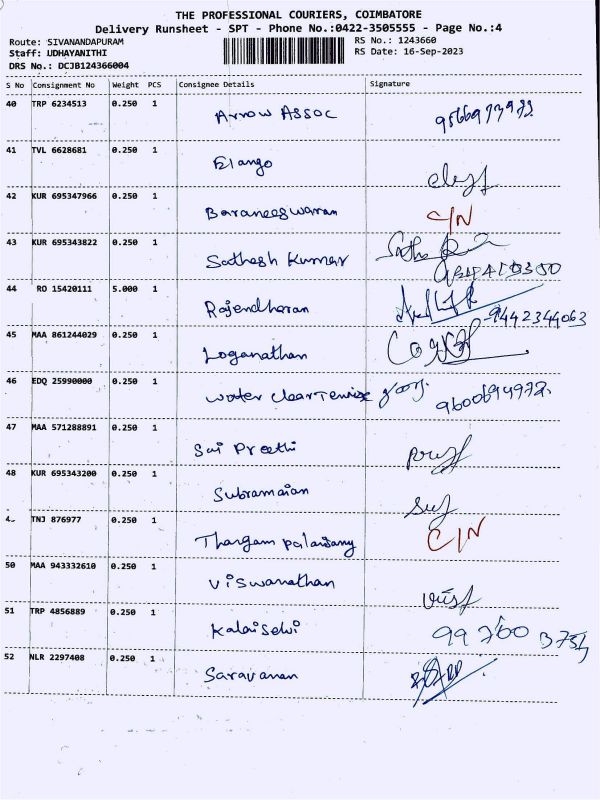 THE PROFESSIONAL COURIERS, COIMBATORE
Delivery Runsheet - SPT - Phone No.:0422-3505555 - Page No.:4
Route: SIVANANDAPURAM RS No.: 1243660
Staff: UDHAYANITHI RS Date: 16-Sep-2023
DRS No.: DCJB124366004
S No Consignment No Weight PCS Consignee Details Signature
40 TRP 6234513 0.250 1 Arrow Assoc
41 TVL 6628681 0.250 1 Elango
42 KUR 695347966 0.250 1 Baraneeswaran C/N
43 KUR 695343822 0.250 1 Sathesh Kumar
44 RO 15420111 5.000 1 Rajendharan 9442344063
45 MAA 861244029 0.250 1 Loganathan
46 EDQ 25990000 0.250 1 water clear 9600694972
47 MAA 571288891 0.250 1 Sai Preethi
48 KUR 695343200 0.250 1 Subramaian
TNJ 876977 0.250 1 Thangam C/N
50 MAA 943332610 0.250 1 Viswanathan
51 TRP 4856889 0.250 1 Kalaiselvi 99760
52 NLR 2297408 0.250 1 Saravanan